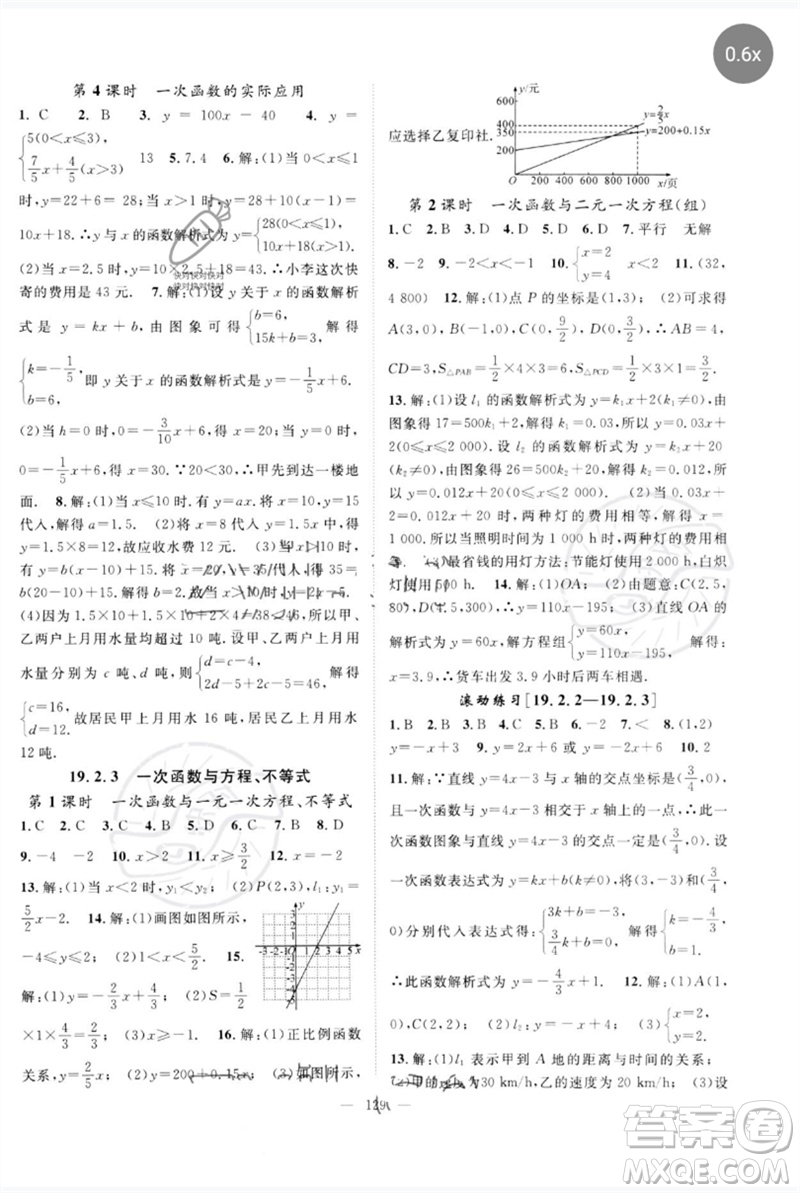 第 4 课时　一次函数的实际应用
1. C　2. B　3. y = 100x - 40　4. y =
{5(0<x≤3) 7/5x+6/5(x>3)　13　5. 7.4　6. 解:(1)当 x≤1
时,y=22+6=28;当 x>1 时,y=28+10(x-1)=
10x+18.∴y 与 x 的函数解析式为y={28(0<x≤1) 10x+18(x>1).
(2)当 x=2.5 时,y=10×2.5+18=43.∴小李这次快
寄的费用是 43 元.　7. 解:(1)设 y 关于 x 的函数解析
式是 y = kx + b,由图象可得{b=6, 15k+b=3,解得
{k=-1/5 b=6,即 y 关于 x 的函数解析式是 y=-1/5x+6.
(2)当 h=0 时,0=-3/10x+6,得 x=20;当 y=0 时,
0=-1/5x+6,得 x=30.∵20<30,∴甲先到达一楼地
面.　8. 解:(1)当 x≤10 时,有 y=ax.将 x=10,y=15
代入,解得 a=1.5.　(2)当 x=8 时,y=1.5x=
1.5×8=12.故应收水费 12 元.　(3)当
(4)因为 1.5×10+1.5×10+2×4=38<46,所以甲、
乙两户上月用水量均超过 10 吨.设甲、乙两户上月用
水量分别为 c 吨、d 吨,则{d=c-4, 2d-5+2c-5=46.解得
{c=16, d=12.故居民甲上月用水 16 吨,居民乙上月用水
12 吨.
19.2.3　一次函数与方程、不等式
第 1 课时　一次函数与一元一次方程、不等式
1. C　2. C　3. A　4. B　5. D　6. C　7. B　8. D
9. -4　-2　10. x>2　11. x≥3/2　12. x=2
13. 解:(1)当 x<2 时,y₁<y₂;　(2)P(2,3),l₁:y=
5/2x-2.　14. 解:(1)画图如图所示,
-4≤y≤2;　(2)1<x<5/2.　15.
解:(1)y=2/3x+4/3;　(2)S=1/2
×1×4/3=2/3;　(3)x>-1.　16. 解:(1)正比例函数
关系,y=2/5x;　(2)y=200+0.15x;　(3)如图所示,
y
3
2
1
-3-2-1 O 1 2 3 4 5 x
y/元
600
400
350
200
y=2/5x
y=200+0.15x
O 200 400 600 800 1000 x/页
应选择乙复印社.
第 2 课时　一次函数与二元一次方程(组)
1. C　2. B　3. D　4. A　5. D　6. D　7. 平行　无解
8. -2　9. -2<m<1　10. {x=2 y=4　x<2　11. (32,
4 800)　12. 解:(1)点 P 的坐标是(1,2);　(2)可求得
A(0,3),B(0,-1),C(0,9/2),D(0,3/2).∴AB=4,
CD=3,S△PAB=1/2×4×3=6,S△PCD=1/2×3×1=3/2.
13. 解:(1)设 l₁ 的函数解析式为 y=k₁x+2(k₁≠0),由
图象得 17=500k₁+2,解得 k₁=0.03,所以 y=0.03x
+2(0≤x≤2 000).设 l₂ 的函数解析式为 y=k₂x+20
(k₂≠0),由图象得 26=500k₂+20,解得 k₂=0.012,所以
y=0.012x+20(0≤x≤2 000).　(2)当 0.03x+2=
0.012x+20 时,两种灯的费用相等,解得 x=
1 000.所以当照明时间为 1 000 h 时,两种灯的费用相
等.　(3)最省钱的用灯方法:节能灯使用 2 000 h,白炽
灯使用 500 h.　14. 解:(1)OA;　(2)由题意:C(2.5,
80),D(4.5,300),∴y=110x-195;　(3)直线 OA 的
解析式为 y=60x,解方程组{y=60x, y=110x-195,解得
{x=3.9, y=234.∴货车出发 3.9 小时后两车相遇.
滚动练习[19.2.2—19.2.3]
1. B　2. B　3. C　4. A　5. B　6. -2　7. <　8. (1,0)
9. y=-x+3　10. y=2x+6或 y=-2x-2
11. 解:∵直线 y=4x-3 与 x 轴的交点坐标为(3/4,0),
且一次函数与直线 y=4x-3 交于 x 轴上的一点,∴此一次
函数图象与直线 y=4x-3 的交点一定是(3/4,0).设一次
函数表达式为 y=kx+b(k≠0),将(3,-3),(3/4,
0)分别代入表达式中,得{3k+b=-3, 3/4k+b=0,解得{k=-4/3, b=1.
∴此函数解析式为 y=-4/3x+1.　12. 解:(1)A(1,
0),C(2,2);　(2)l₂:y=-2x+6;　(3)x>2.
13. 解:(1)l₁ 表示甲到 A 地的距离与时间的关系;
(2)甲的速度为30 km/h,乙的速度为 20 km/h;　(3)设
129
0.6x
快对快对快对
快对快对快对
答案圈
MXQE.COM